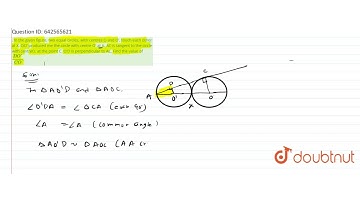 Question ID: 642565621
In the given figure, two equal circles, with centres O and O', touch each other
at X. OO' produced meets the circle with centre O' at A. AC is tangent to the circle
with centre O, at the point C. O'D is perpendicular to AC. Find the value of
DO'
CO
Sol:
In ΔAO'D and ΔAOC,
∠O'DA = ∠OCA (each 90)
∠A = ∠A (common angle)
ΔAO'D ~ ΔAOC (AA cr
A
D
O'
X
C
O
doubtnut